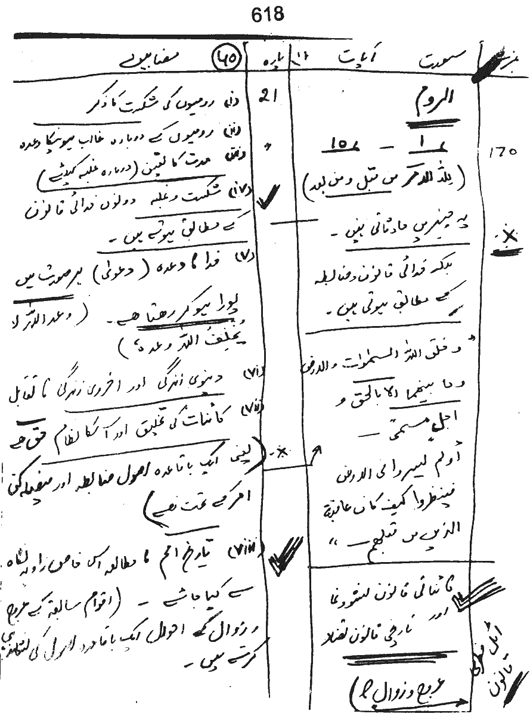 618
نمبر سورت آیات پارہ (40) مضامین
170
الروم
1 - 10
(للہ الامر من قبل ومن بعد)
یہ چیزیں حادثاتی نہیں -
بلکہ خدائی قانون و ضابطہ
کے مطابق ہوتی ہیں -
و خلق اللہ السمٰوات والارض
وما بینھما الا بالحق و
اجل مسمّی —
اولم یسیروا فی الارض
فینظروا کیف کان عاقبۃ
الذین من قبلھم —
کائناتی قانون نشوونما
اور
تاریخی قانون
عروج و زوال
قانون
21
(i) رومیوں کی شکست کا ذکر
(ii) رومیوں کے دوبارہ غالب ہونیکا وعدہ
(iii) مدت کا تعین (دوبارہ غلبہ کیلئے)
(iv) شکست و غلبہ دونوں خدائی قانون
کے مطابق ہوتے ہیں -
(v) خدا کا وعدہ (دعویٰ) ہر صورت میں
پورا ہو کر رھتا ھے - (وعد اللہ لا
یخلف اللہ وعدہ)
(vi) دنیوی زندگی اور اخروی زندگی کا تقابل
(vii) کائنات کی تخلیق اور اسکا نظام حق ھے
(یعنی ایک باقاعدہ اصول ضابطہ اور
امر کے تحت ھے)
(viii) تاریخ امم کا مطالعہ اس خاص زاویہ نگاہ
سے کیا جائے - (اقوام سابقہ کے عروج
و زوال کے احوال ایک باقاعدہ اصول کی
کرتے ہیں -